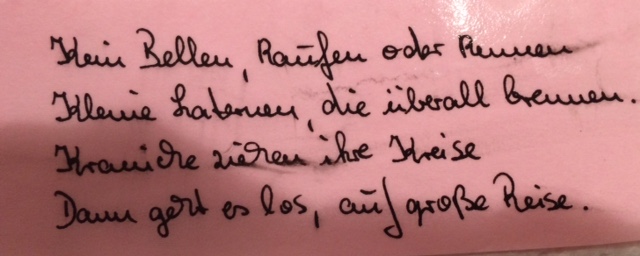 Kein Bellen, Raufen oder Rennen
Kleine Laternen, die überall brennen.
Kraniche ziehen ihre Kreise
Dann geht es los, auf große Reise.